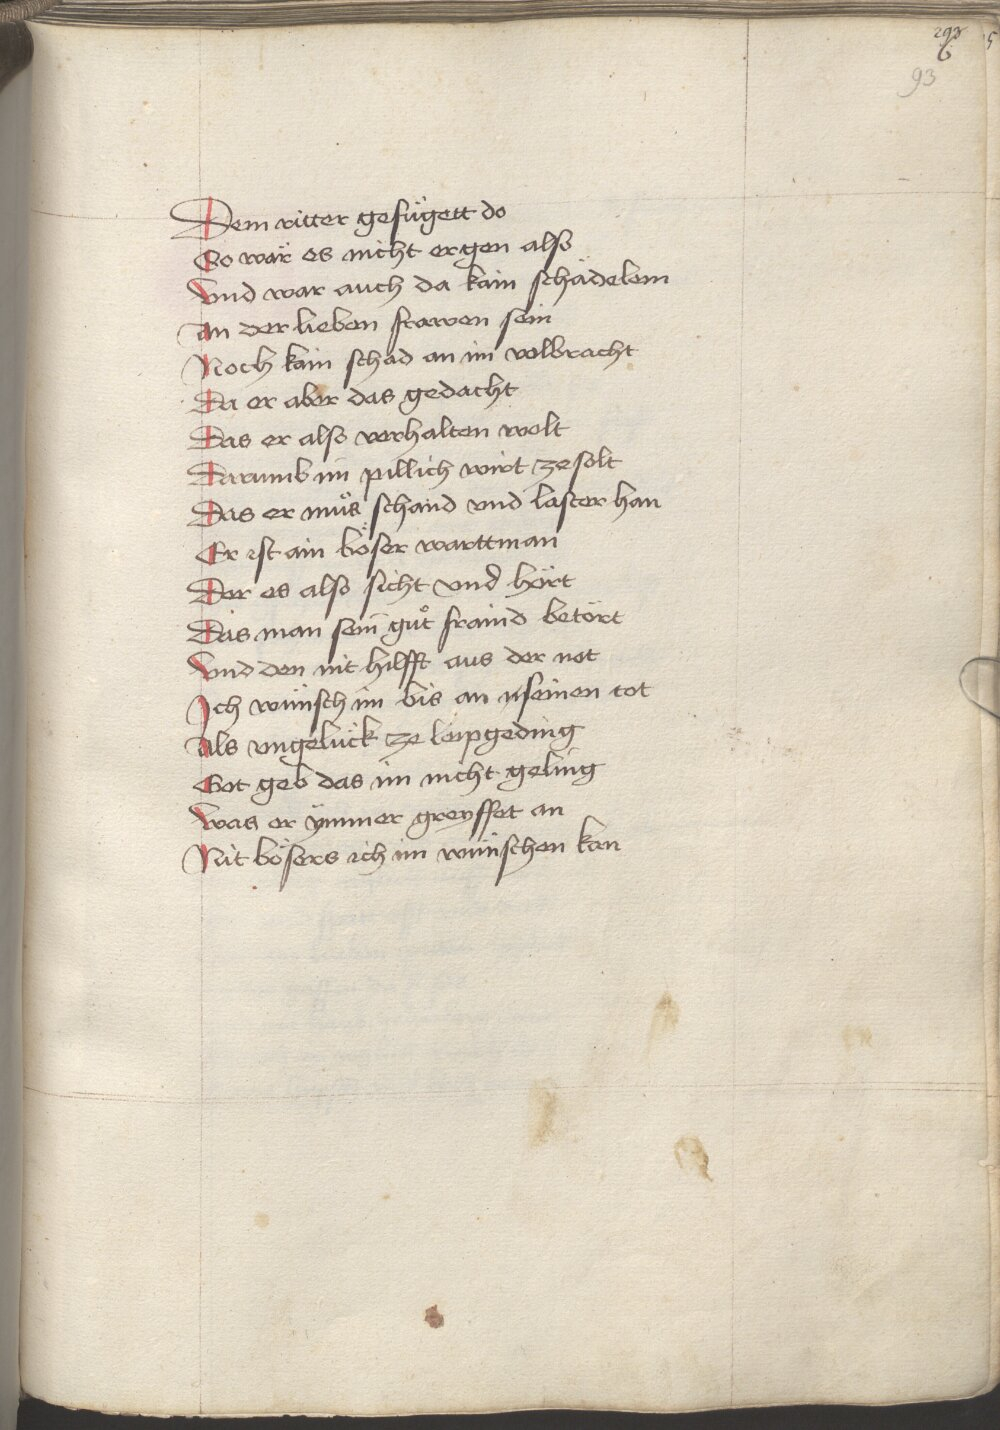 293
6
93
Dem ritter gefügett do
So wär es nicht ergen also
Vnd war auch da kain schädelein
An der lieben frawen sein
Noch kain schad an im volbracht
Da er aber das gedacht
Das er also verhalten wolt
Darumb im pillich wirt ze solt
Das er muͦs schand vnd laster han
Er ist ain böser warttman
Der es also sicht vnd hört
Das man sein guͦt fraind betört
Vnd den nit hilfft aus der not
Ich wünsch im bis an seinen tot
Als vngelück ze leipgeding
Got geb das im nicht geling
Was er ÿmmer greyffet an
Nit bösers ich im wünschen kan